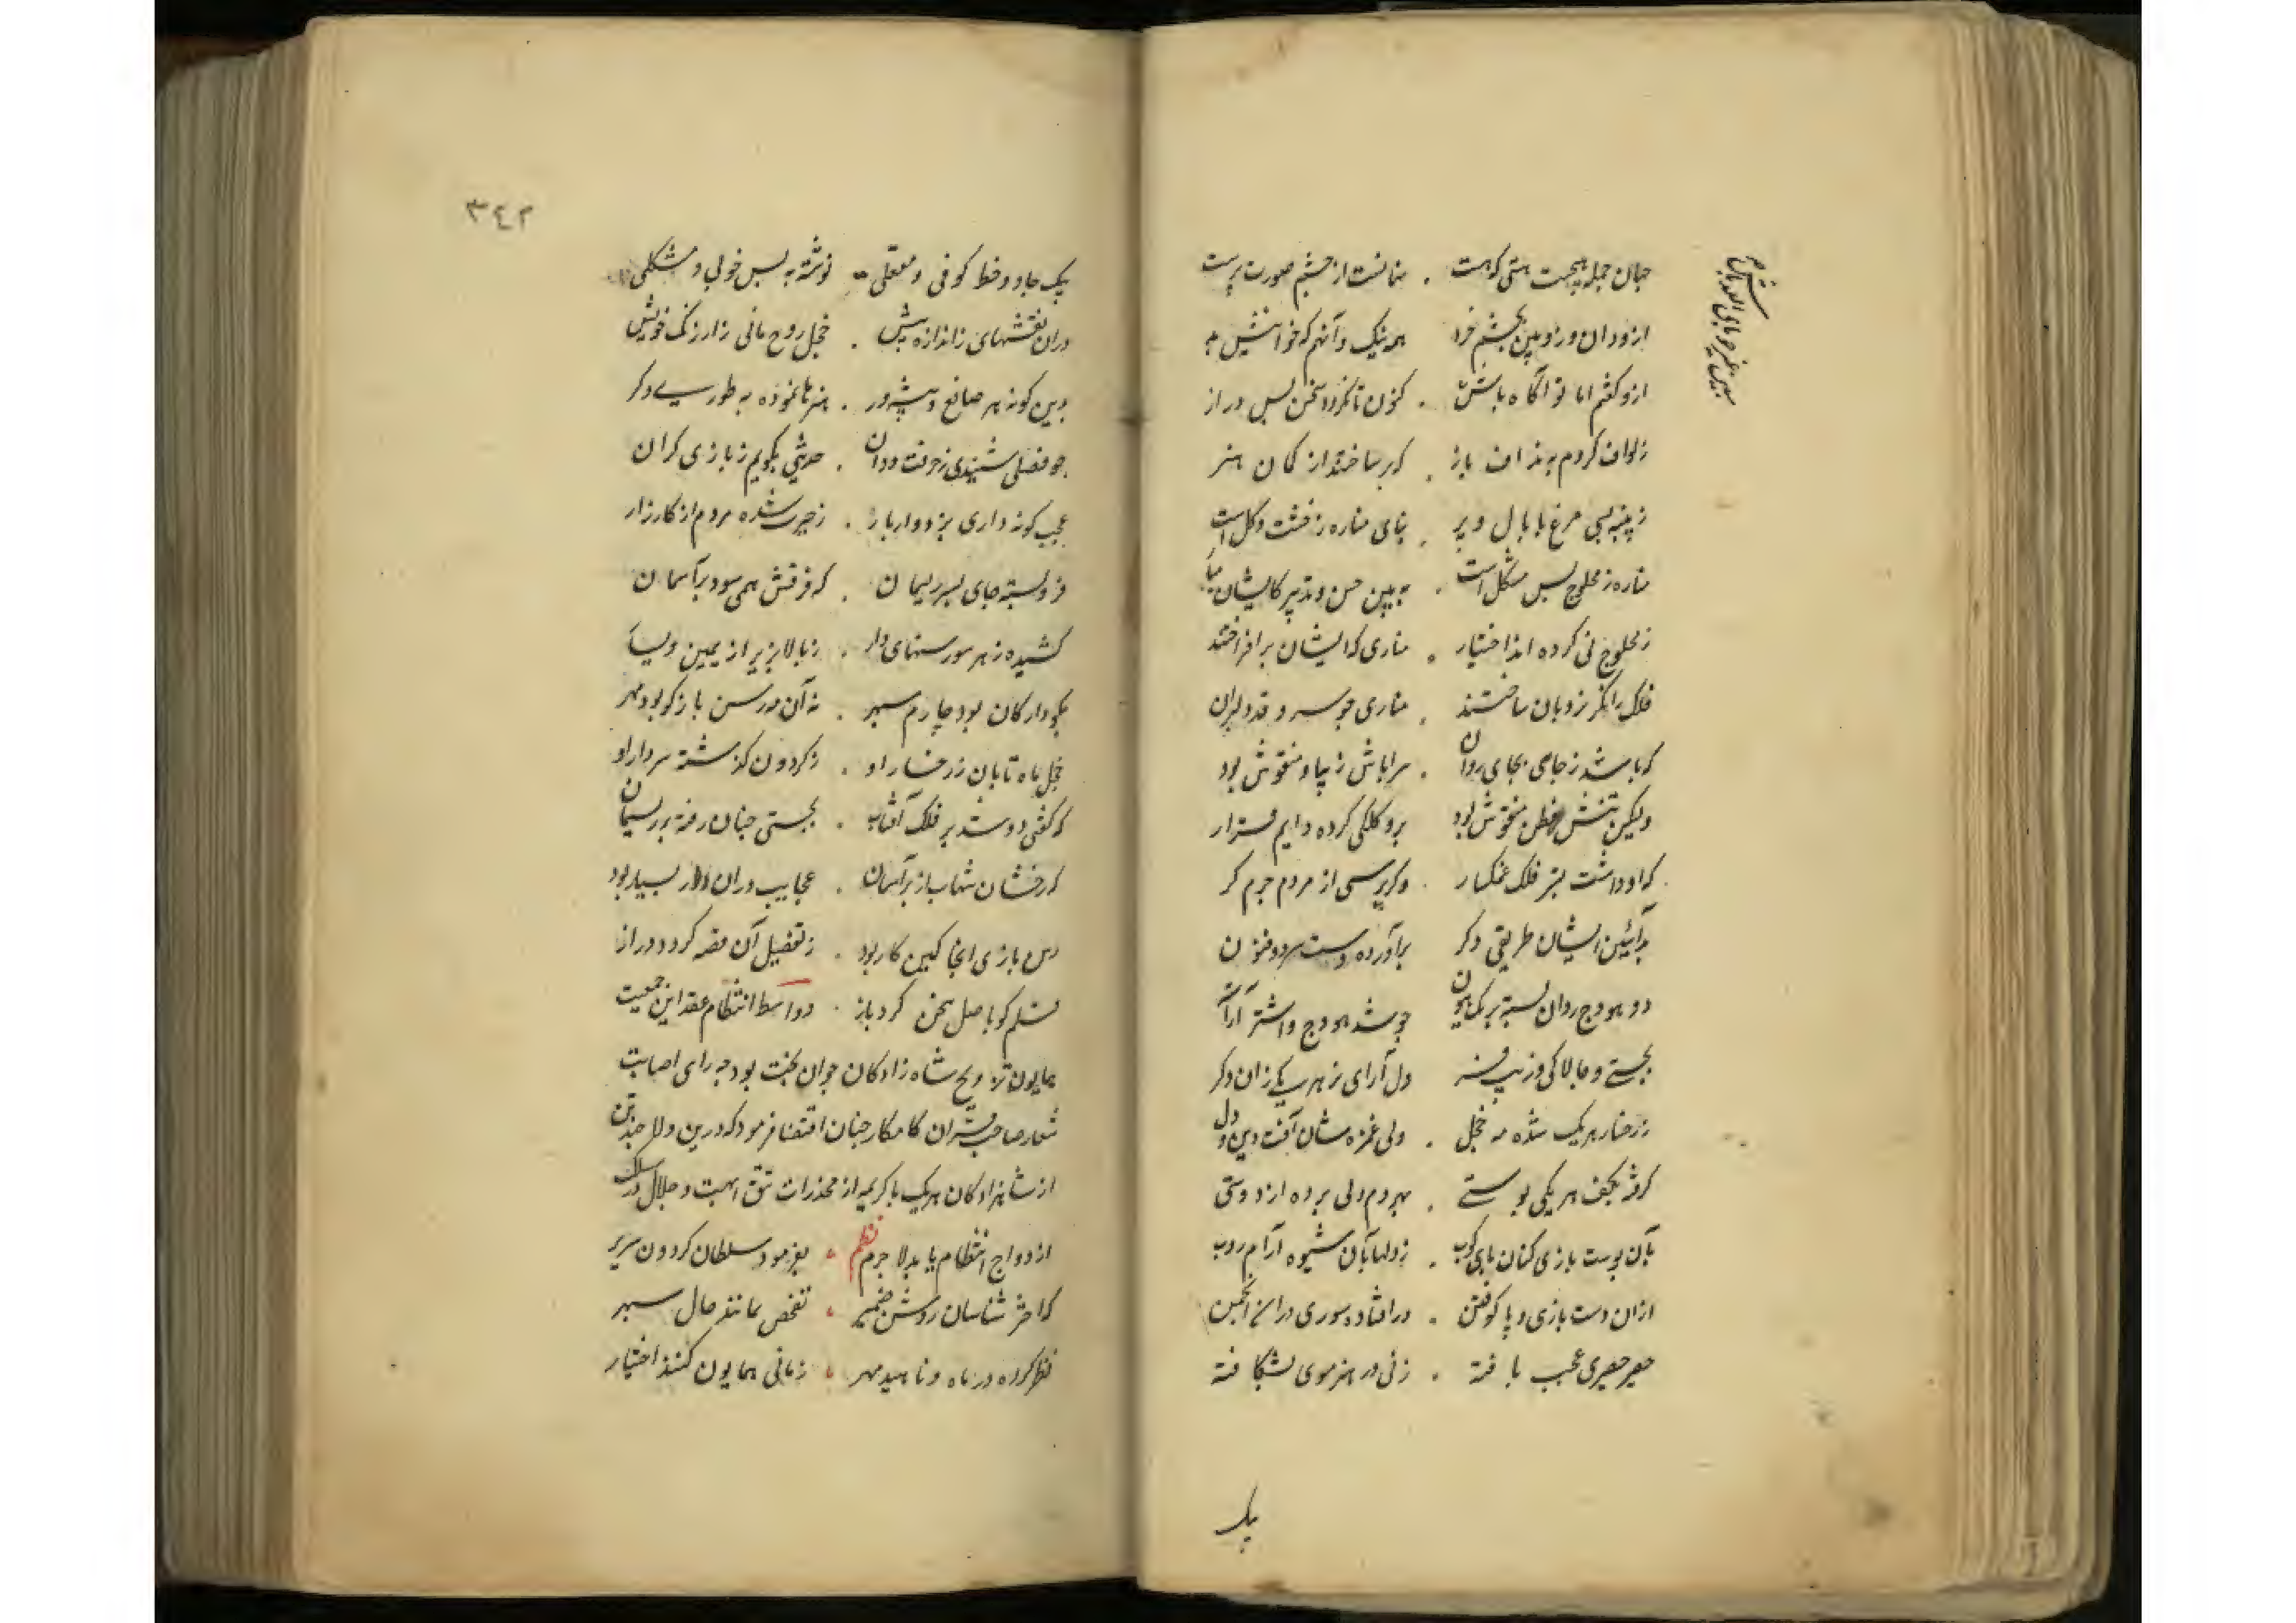 جهان جمله هیچست هستی که هست . منافست از چشم صورت پرست
ازو دان و زو بین بچشم خرد همه نیک و آنهم که خوانیش بد
ازو گفتم اما تو آگاه باش . کنون تا نگردد سخن بس دراز
که بر ساختند از کمان هنر
ز پنبه بسی مرغ با بال و پر . بنای مناره ز خشت و گل است
مناره ز محلوج بس مشکل است . به بین حسن و تدبیر کایشان
ز محلوج نی کرده اند اختیار . مناری که ایشان برافراختند
فلک را مگر نردبان ساختند . مناری چو سرو قد دلبران
که باشد ز جایی بجای روان . سراپاش زیبا و منقوش بود
ولیکن تنش قطن منفوش بود برو لکلکی کرده دایم قرار
که او داشت بر فلک غمگسار . وگر پرسی از مردم چرم گر
بد آئین ایشان طریقی دگر برآورده دست
دو هودج روان بسته بر یک هیون چو شد هودج و اشتر آراسته
بچستی و چالاکی و زیب و فر دل آرای تر هر یکی زان دگر
ز رخسار هر یک شده مه خجل . ولی غمزه شان آفت دین و دل
گرفته بکف هر یکی پوستی . بهر دم دلی برده از دوستی
بآن پوست بازی کنان پای کوب . ز دلها بآن شیوه آرام روب
ازان دست بازی و پا کوفتن . در افتاده سوری دران انجمن
حصیر حصیری عجب بافته . زنی در هنر موی بشکافته
یک
٣٤٢
یک جا دو خط کوفی و معقلی نوشته به بس خوبی و مشکلی
دران نقشهای ز اندازه بیش . خجل روح مانی ز ارژنگ خویش
بدین گونه هر صانع و پیشه ور . هنرها نموده به طوری دگر
چو فصلی شنیدی ز حرفت وران . حدیثی بگویم ز بازی گران
عجب گونه داری بزد دارباز . ز حیرت شده مردم از کارزار
فرو بسته جای بسر ریسمان . که فرقش همی سود بر آسمان
کشیده ز هر سو رسنهای دار . ز بالا بزیر از یمین و یسار
بگو دار کان بود چارم سپهر . نه آن مه رسن باز کو بود مهر
خجل ماه تابان ز رخسار او . ز گردون گذشته سر دار او
که گفتی دوشد بر فلک آفتاب . بچستی چنان رفته بر ریسمان
که رخشان شهاب از بر آسمان . عجایب دران دار بسیار بود
رسن بازی آنجا کمین کار بود . ز تفصیل آن قصه گردد دراز
قلم کو باصل سخن گرد باز . و واسطه انتظام عقد این جمعیت
همایون تزویج شاه زادگان جوان بخت بود چه رای اصابت
شعار صاحب قران کامکار چنان اقتضا فرمود که درین ولا چند تن
از شاهزادگان هر یک با کریمه از مخدرات تتق ابهت و جلال در سلک
ازدواج انتظام یابد لا جرم نظم بفرمود سلطان گردون سریر
که اختر شناسان روشن ضمیر تفحص نمایند حال سپهر
نظر کرده در ماه و ناهید و مهر زمانی همایون کنند اختیار